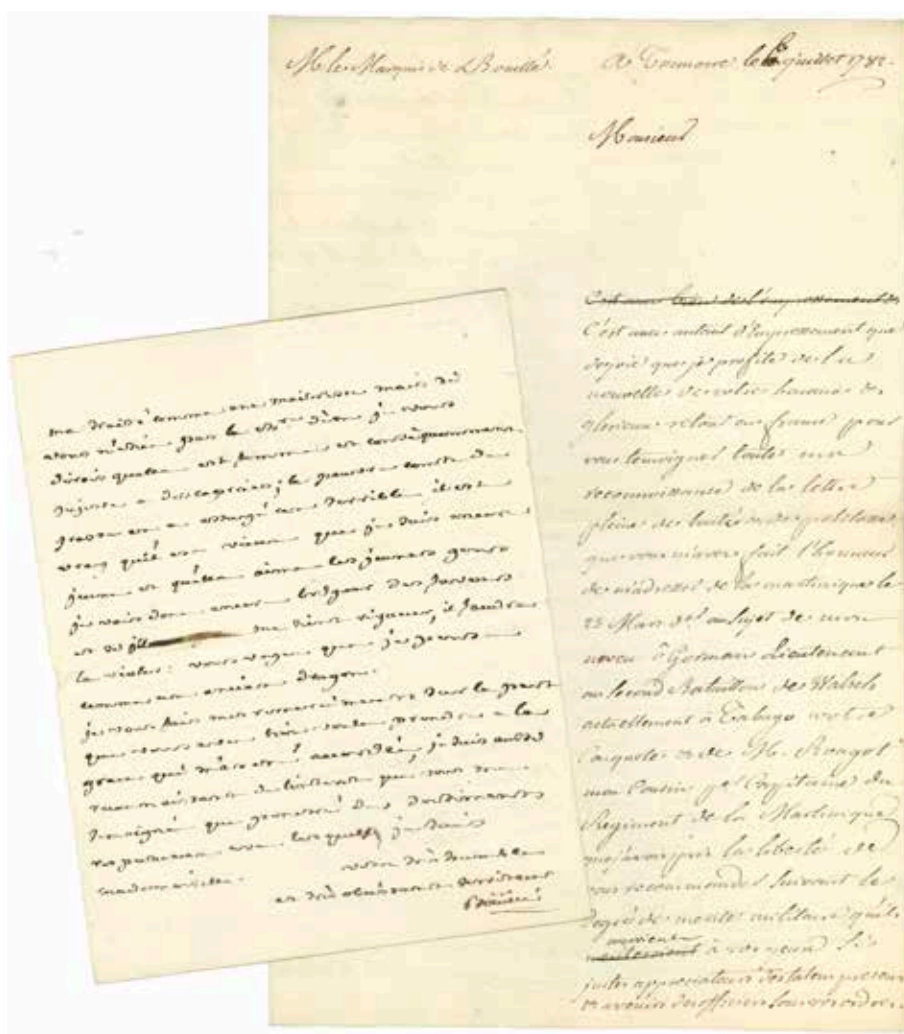 Mr le Marquis de Bouillé
A Tonnerre le juillet 1782.
Monsieur
C'est avec de l'empressement de
C'est avec autant d'Empressement que
de joie que je profite de la
nouvelle de votre heureux &
glorieux retour en france pour
vous temoigner toute ma
reconnoissance de la lettre
pleine de bontés & de politesse
que vous m'avez fait l'honneur
de m'adresser de la martinique le
23 Mars dr au Sujet de mon
neveu ô Gorman Lieutenant
au Second Bataillon de Walsh
actuellement à Tabago votre
Conquete & de M. Rougot
mon Cousin Capitaine du
Régiment de la Martinique
que j'avois pris la liberté de
vous recommander suivant le
degré de merite militaire qu'ils
auroient
à vos yeux Si
justes appréciateurs des talens
& avenir des officiers sous vos ordres.
ma traité comme une maitresse mais
vous n'étiez pas le je vous
dirois quelle est femme et consequemment
sujette a des caprices, le pauvre comte de
grasse en a essuyé un terrible il est
vray qu'il est vieux que je suis encore
jeune et quelle aime les jeunes gens
je vais donc encore briguer ses faveurs
et si elle me tient rigueur, il faudra
la violer: vous voyez que je pense
comme un ancien dragon.
je vous fais mes remerciements sur la part
que vous avez bien voulu prendre a la
grace qui m'a été accordée, je suis aussi
reconnoissant de l'interest que vous
temoigné que penetré des sentiments
respectueux avec lesquels je suis
mademoiselle.
votre très humble
et très obéissant serviteur
Bouillé